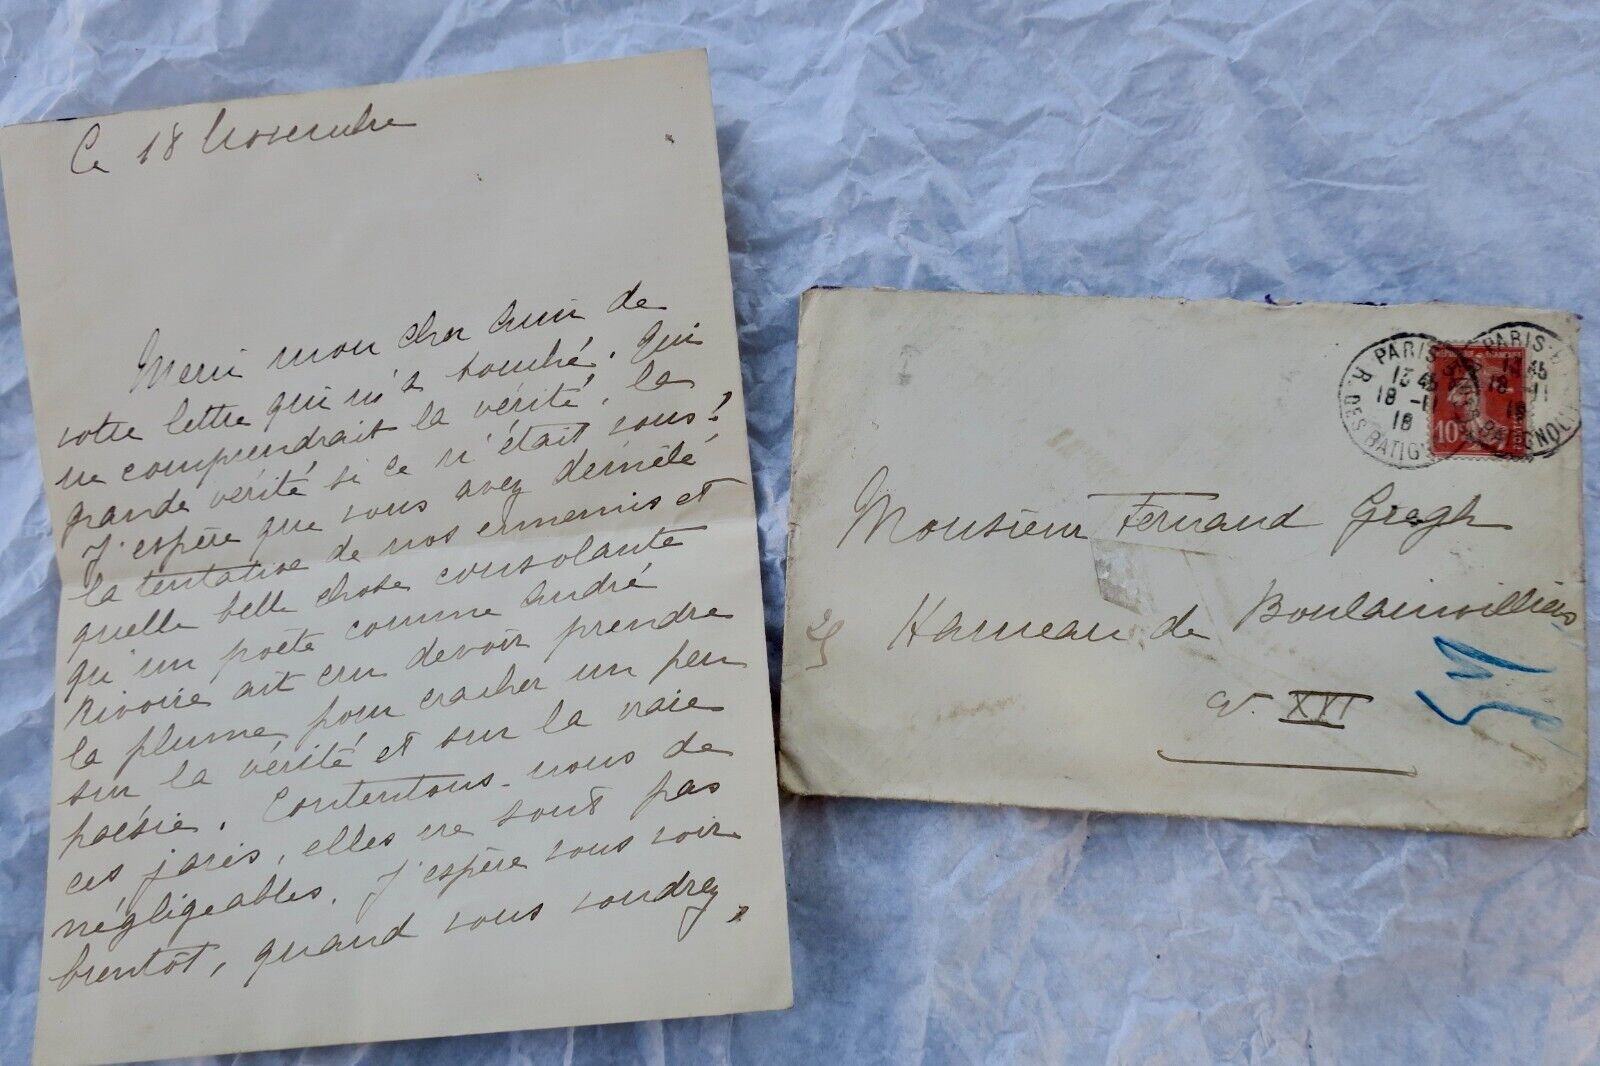 Ce 18 Novembre
Merci mon cher ami de
votre lettre qui m'a touché. Qui
me comprendrait la vérité, la
grande vérité si ce n'était vous!
J'espère que vous avez démêlé
la tentative de nos ennemis et
quelle belle chose consolante
qu'un poète comme André
Rivoire ait cru devoir prendre
la plume pour cracher un peu
sur la vérité et sur la vraie
poésie. Contentons-nous de
ces joies, elles ne sont pas
négligeables. J'espère vous voir
bientôt, quand vous voudrez.
PARIS
13 45
18 -11
18
R. DES BATIGNOLLES
PARIS
13 45
18 -11
18
10
POSTES
Monsieur Fernand Gregh
Hameau de Boulainvilliers
XVI